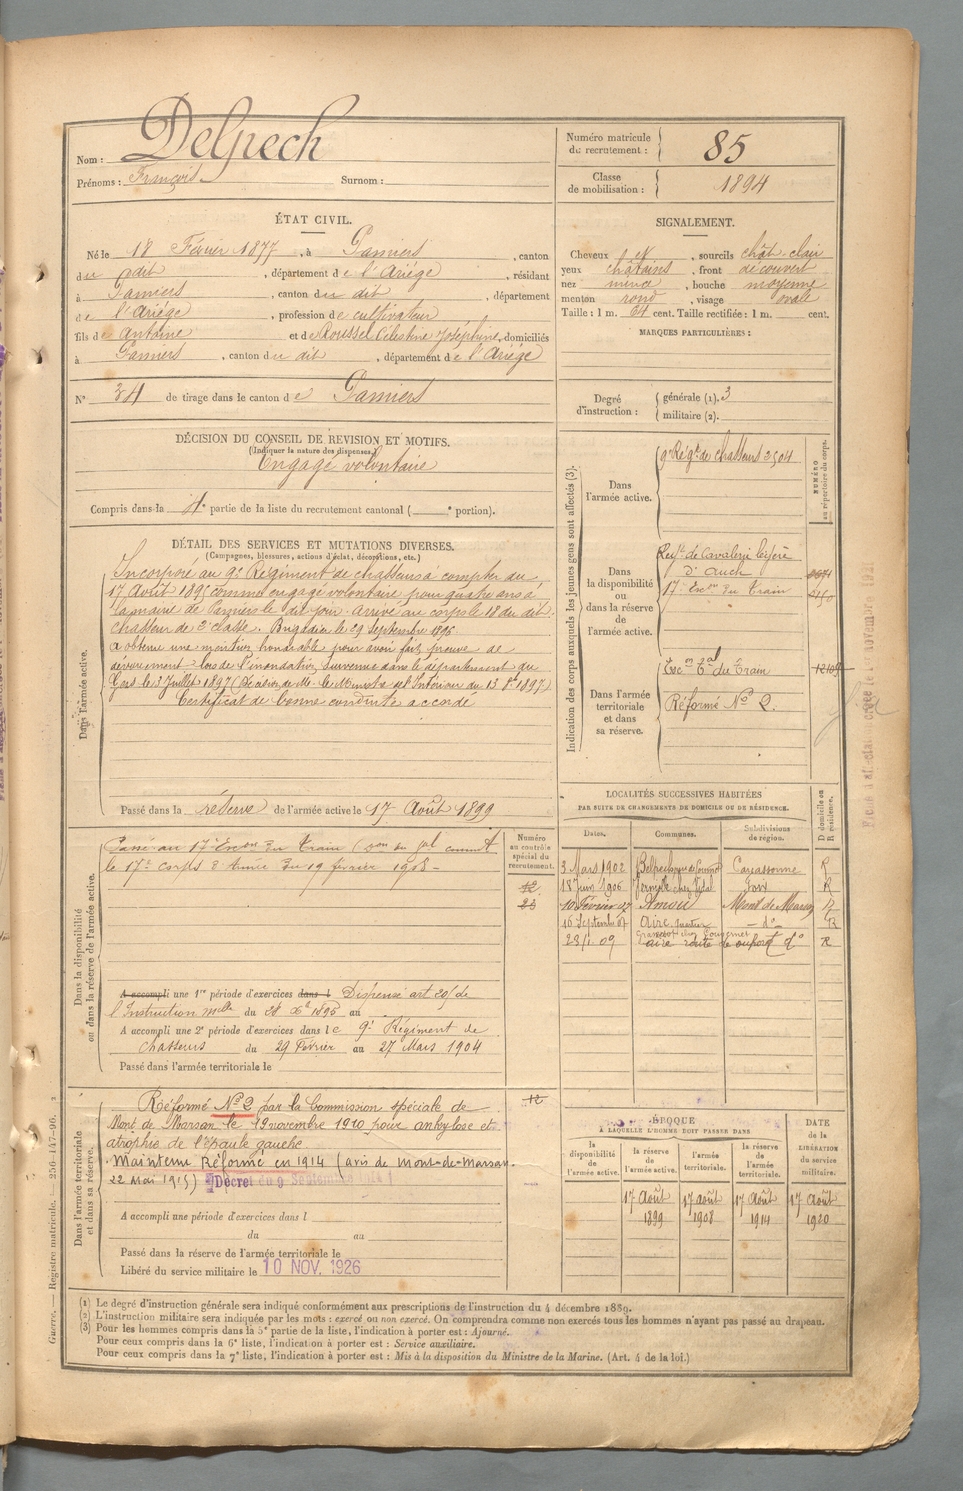 Nom : Delpech
Prénoms : François Surnom :
Numéro matricule du recrutement : 85
Classe de mobilisation : 1894
ÉTAT CIVIL.
Né le 18 Février 1877, à Pamiers, canton
du dit, département de l'Ariége, résidant
à Pamiers, canton du dit, département
de l'Ariége, profession de cultivateur
fils de Antoine et de Roussel Célestine Joséphine, domiciliés
à Pamiers, canton du dit, département de l'Ariége
N° 34 de tirage dans le canton de Pamiers
SIGNALEMENT.
Cheveux et, sourcils chât. clair
yeux châtains, front découvert
nez mince, bouche moyenne
menton rond, visage ovale
Taille : 1 m. 64 cent. Taille rectifiée : 1 m. cent.
MARQUES PARTICULIÈRES :
Degré d'instruction : générale (1). 3
militaire (2).
DÉCISION DU CONSEIL DE REVISION ET MOTIFS.
(Indiquer la nature des dispenses.)
Engagé volontaire
Compris dans la 4e partie de la liste du recrutement cantonal ( e portion).
DÉTAIL DES SERVICES ET MUTATIONS DIVERSES.
(Campagnes, blessures, actions d'éclat, décorations, etc.)
Dans l'armée active.
Incorporé au 9e Régiment de chasseurs à compter du
17 Août 1895 comme engagé volontaire pour quatre ans à
la mairie de Pamiers le dit jour. Arrivé au corps le 18 du dit.
chasseur de 2e classe. Brigadier le 29 Septembre 1896
a obtenu une mention honorable pour avoir fait preuve de
dévouement lors de l'inondation survenue dans le département du
Gers le 3 Juillet 1897 (Décision de M. le Ministre de l'Intérieur du 13 8bre 1897)
Certificat de bonne conduite accordé
Passé dans la réserve de l'armée active le 17 Août 1899
Indication des corps auxquels les jeunes gens sont affectés (3).
NUMÉRO au répertoire du corps.
Dans l'armée active.
9e Régt de chasseurs 3504
Dans la disponibilité ou dans la réserve de l'armée active.
Regt de Cavalerie légère
d'Auch
17e Escon du Train
2150
Dans l'armée territoriale et dans sa réserve.
Escon Tal du Train
Réformé No 2.
Dans la disponibilité ou dans la réserve de l'armée active.
Numéro au contrôle spécial du recrutement.
Passé au 17e Escon du Train
le 17e corps d'Armée du 19 février 1908
12
23
A accompli une 1re période d'exercices dans l Dispensé art
l'Instruction melle du 28 Xbre 1895 au
A accompli une 2e période d'exercices dans le 9e Régiment de
Chasseurs du 29 Février au 27 Mars 1904
Passé dans l'armée territoriale le
LOCALITÉS SUCCESSIVES HABITÉES
PAR SUITE DE CHANGEMENTS DE DOMICILE OU DE RÉSIDENCE.
Dates. Communes. Subdivisions de région. D domicile ou R résidence.
3 Mars 1902 Carcassonne R
18 Juin 1906 Foix R
10 Février 07 Amou Mont de Marsan D
16 Septembre 07 Aire do R
23/1 09 aire route do R
Dans l'armée territoriale et dans sa réserve.
Réformé No 2 par la Commission spéciale de
Mont de Marsan le 19 novembre 1910 pour ankylose et
atrophie de l'épaule gauche.
Maintenu Réformé en 1914 (avis de Mont-de-Marsan
22 Mai 1915) Décret du 9 Septembre 1914
12
A accompli une période d'exercices dans l
du au
Passé dans la réserve de l'armée territoriale le
Libéré du service militaire le 10 NOV. 1926
ÉPOQUE
A LAQUELLE L'HOMME DOIT PASSER DANS
la disponibilité de l'armée active. la réserve de l'armée active. l'armée territoriale. la réserve de l'armée territoriale. DATE de la LIBÉRATION du service militaire.
17 Août 1899 17 août 1908 17 Août 1914 17 Août 1920
(1) Le degré d'instruction générale sera indiqué conformément aux prescriptions de l'instruction du 4 décembre 1889.
(2) L'instruction militaire sera indiquée par les mots : exercé ou non exercé. On comprendra comme non exercés tous les hommes n'ayant pas passé au drapeau.
(3) Pour les hommes compris dans la 5e partie de la liste, l'indication à porter est : Ajourné.
Pour ceux compris dans la 6e liste, l'indication à porter est : Service auxiliaire.
Pour ceux compris dans la 7e liste, l'indication à porter est : Mis à la disposition du Ministre de la Marine. (Art. 4 de la loi.)
Guerre. — Registre matricule. — 256-147-96.